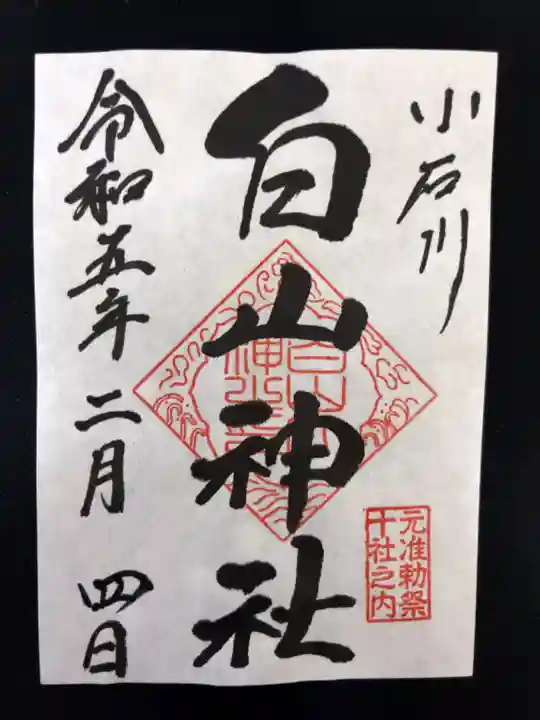 小石川
白山神社
元准勅祭
十社之内
令和五年二月四日